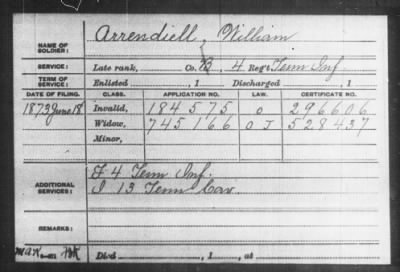 Arrendiell, William
NAME OF SOLDIER:
SERVICE: Late rank, Co. B, 4 Reg't Tenn Inf
TERM OF SERVICE: Enlisted , 1 Discharged , 1
DATE OF FILING. CLASS. APPLICATION NO. LAW. CERTIFICATE NO.
1873 June 18 Invalid, 184575 O 296606
Widow, 745166 O J 528437
Minor,
F 4 Tenn Inf.
ADDITIONAL SERVICES: I 13 Tenn Cav.
REMARKS:
Died , 1 , at